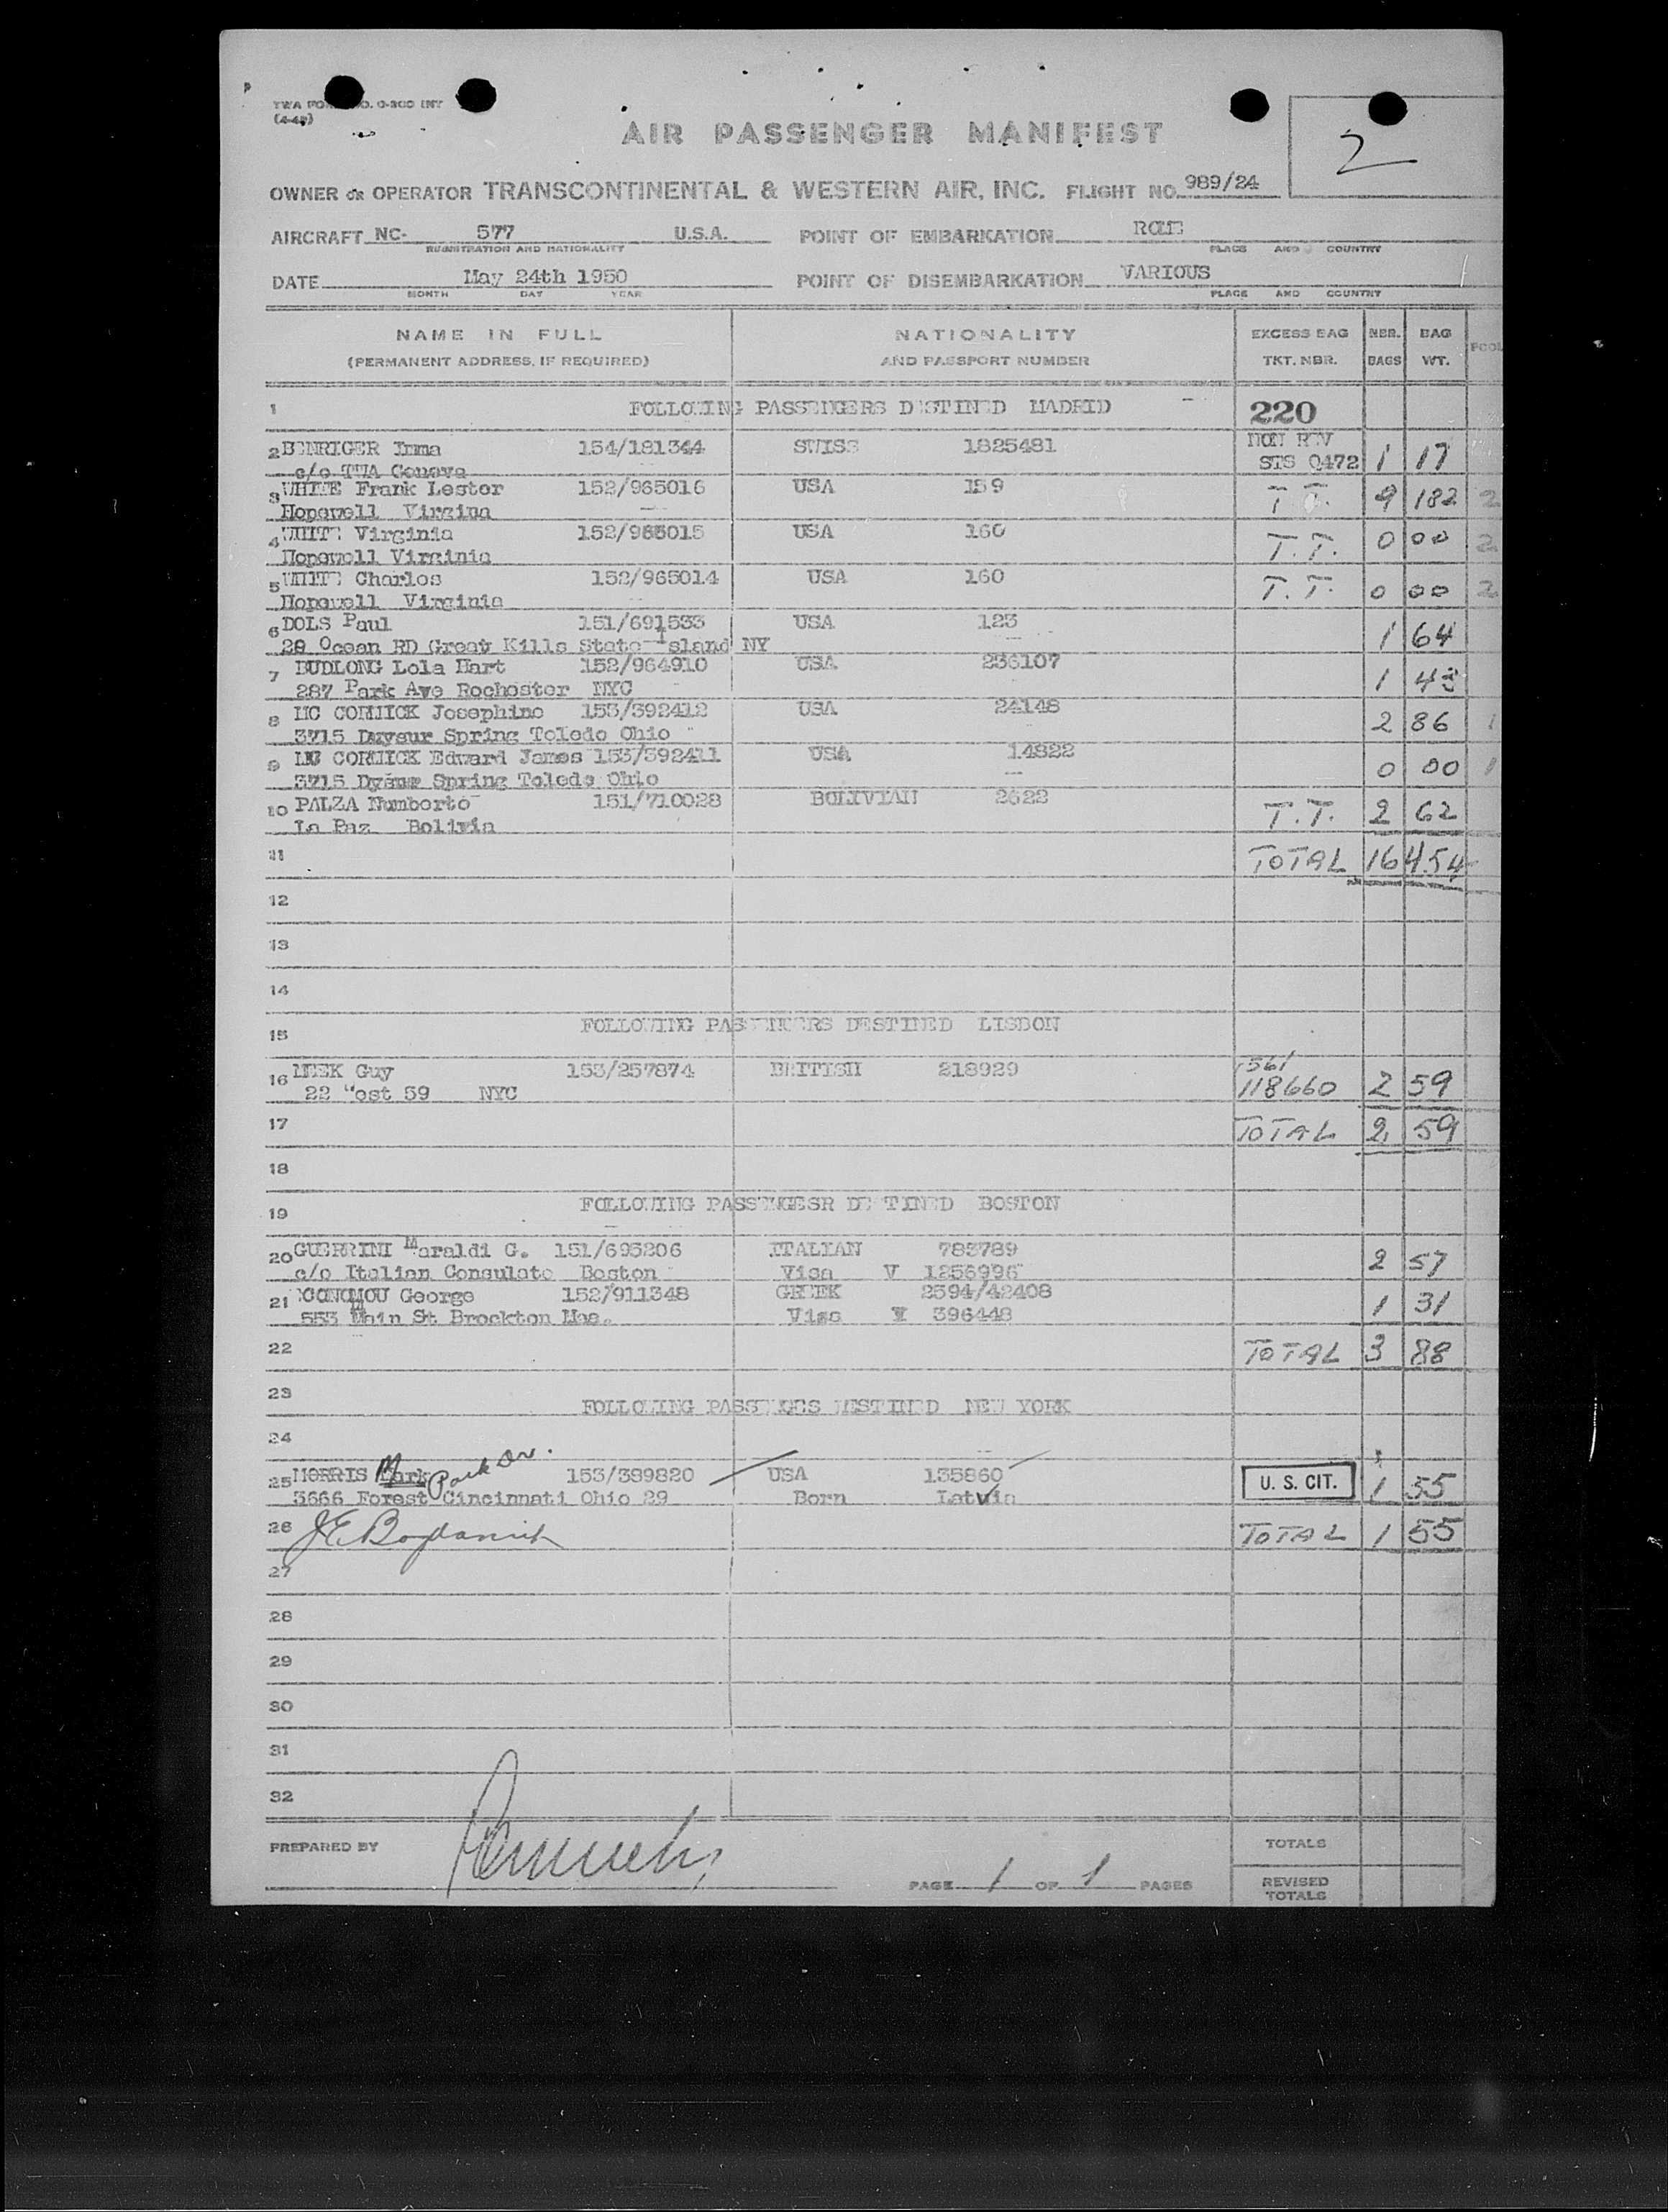 TWA FO O. O-300 INT
(4-48)
2
AIR PASSENGER MANIFEST
OWNER OR OPERATOR TRANSCONTINENTAL & WESTERN AIR, INC. FLIGHT NO. 989/24
AIRCRAFT NC- 577 U.S.A. POINT OF EMBARKATION ROME
REGISTRATION AND NATIONALITY PLACE AND COUNTRY
DATE May 24th 1950 POINT OF DISEMBARKATION VARIOUS
MONTH DAY YEAR PLACE AND COUNTRY
NAME IN FULL NATIONALITY EXCESS BAG NBR. BAG
(PERMANENT ADDRESS, IF REQUIRED) AND PASSPORT NUMBER TKT. NBR. BAGS WT. POOL
1 FOLLOWING PASSENGERS DESTINED MADRID - 220
2 BENRIGER Irma 154/181344 SWISS 1825481 NON REV
c/o TWA Geneva STS 0472 1 17
3 WHITE Frank Lester 152/965016 USA 159 T.T. 9 182 2
Hopewell Virgina
4 WHITE Virginia 152/965015 USA 160 T.T. 0 00 2
Hopewell Virginia
5 WHITE Charles 152/965014 USA 160 T.T. 0 00 2
Hopewell Virginia
6 DOLS Paul 151/691533 USA 123 1 64
28 Ocean RD Great Kills State Island NY
7 BUDLONG Lola Hart 152/964910 USA 236107 1 43
287 Park Ave Rochester NYC
8 MC CORMICK Josephine 153/392412 USA 24148 2 86 1
3715 Duysur Spring Toledo Ohio
9 MC CORMICK Edward James 153/392411 USA 14822 0 00 1
3715 Spring Toledo Ohio
10 PALZA Numberto 151/710028 BOLIVIAN 2622 T.T. 2 62
La Paz Bolivia
11 TOTAL 16 454
12
13
14
15 FOLLOWING PASSENGERS DESTINED LISBON
16 MEEK Guy 153/257874 BRITISH 218929 1561
22 West 59 NYC 118660 2 59
17 TOTAL 2 59
18
19 FOLLOWING PASSENGESR DESTINED BOSTON
20 GUERRINI Maraldi G. 151/695206 ITALIAN 783789 2 57
c/o Italian Consulate Boston Visa V 1256996
21 ECONOMOU George 152/911348 GREEK 2594/42408 1 31
553 Main St Brockton Mas. Visa V 396448
22 TOTAL 3 88
23 FOLLOWING PASSENGES DESTINED NEW YORK
24
25 MORRIS Mark Park Av. 153/389820 USA 135860 U. S. CIT. 1 55
3666 Forest Cincinnati Ohio 29 Born Latvia
26 TOTAL 1 55
27
28
29
30
31
32
PREPARED BY TOTALS
PAGE 1 OF 1 PAGES REVISED
TOTALS